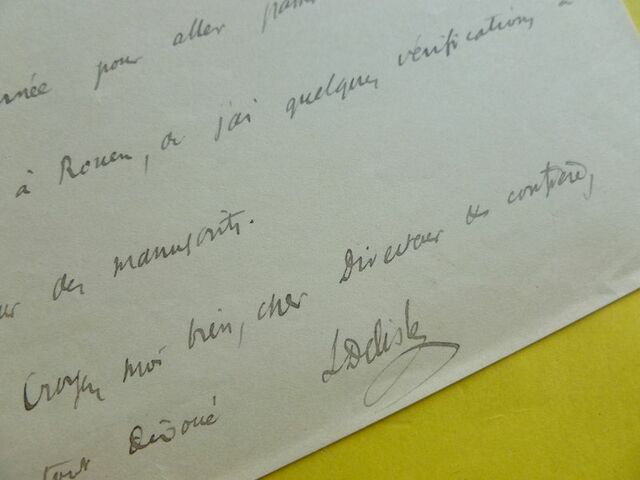 pour aller
à Rouen, où j'ai quelques vérifications à
des manuscrits.
Croyez moi bien, cher Directeur et confrère,
tout dévoué
LDelisle